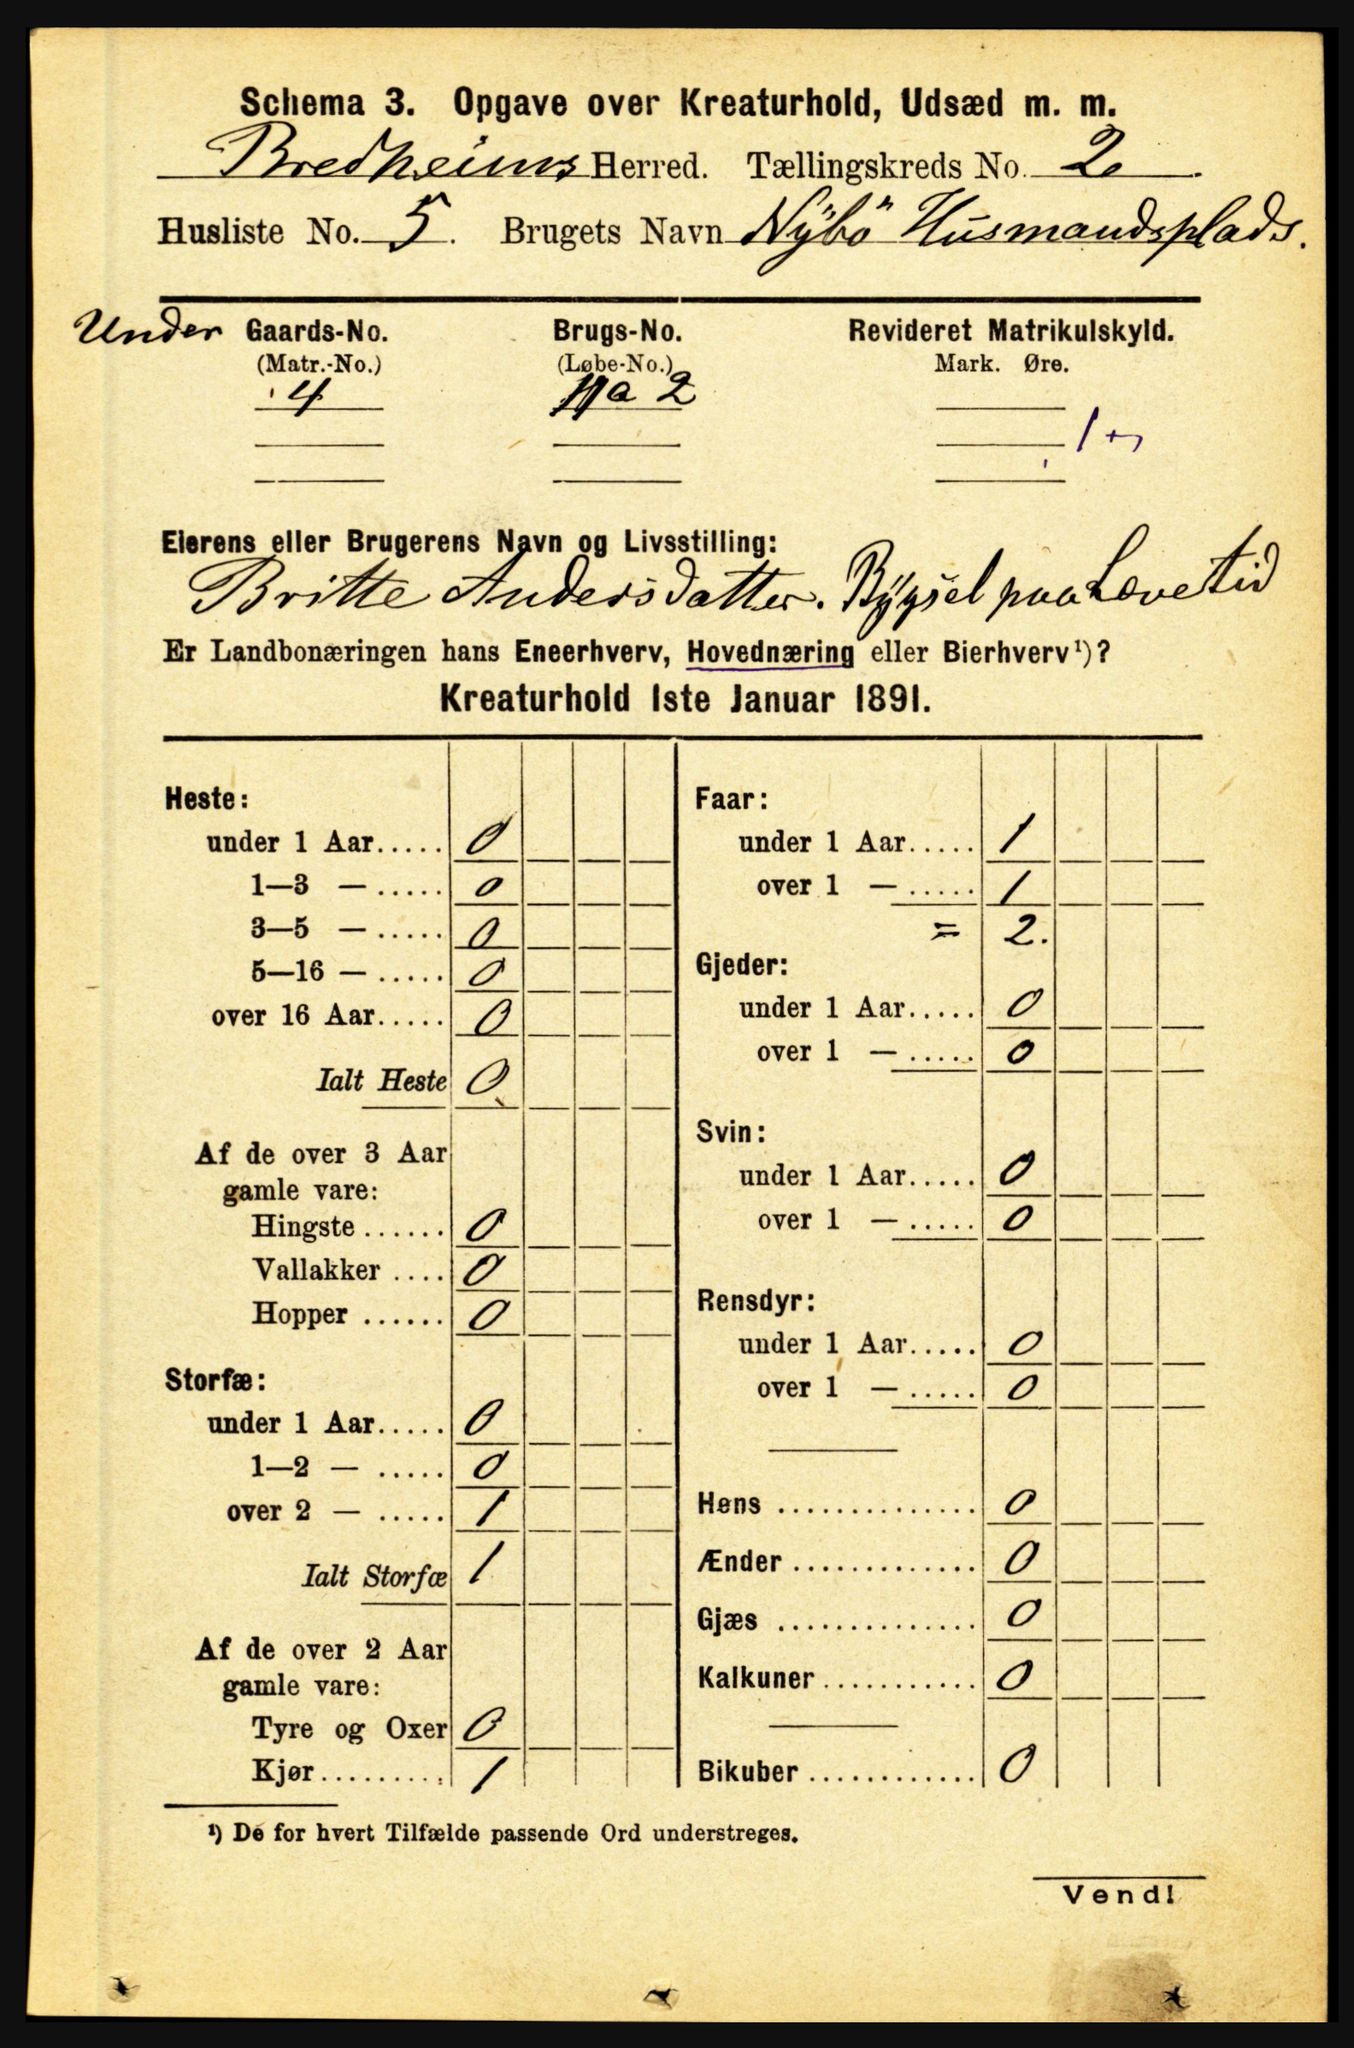 Schema 3. Opgave over Kreaturhold, Udsæd m. m.
Bredheims Herred. Tællingskreds No. 2.
Husliste No. 5. Brugets Navn Nybö Husmandsplads.
Under Gaards-No. Brugs-No. Revideret Matrikulskyld.
(Matr.-No.) (Løbe-No.) Mark. Øre.
4 a 2
1
Eierens eller Brugerens Navn og Livsstilling:
Britte Andersdatter. Bygsel paa Levetid
Er Landbonæringen hans Eneerhverv, Hovednæring eller Bierhverv¹)?
Kreaturhold 1ste Januar 1891.
Heste:
under 1 Aar..... 0
1—3 — ..... 0
3—5 — ..... 0
5—16 — ..... 0
over 16 Aar..... 0
Ialt Heste 0
Af de over 3 Aar
gamle vare:
Hingste ...... 0
Vallakker .... 0
Hopper ...... 0
Storfæ:
under 1 Aar..... 0
1—2 — ..... 0
over 2 — ..... 1
Ialt Storfæ 1
Af de over 2 Aar
gamle vare:
Tyre og Oxer 0
Kjør......... 1
Faar:
under 1 Aar..... 1
over 1 — ..... 1
= 2.
Gjeder:
under 1 Aar..... 0
over 1 — ..... 0
Svin:
under 1 Aar..... 0
over 1 — ..... 0
Rensdyr:
under 1 Aar..... 0
over 1 — ..... 0
Høns ............... 0
Ænder .............. 0
Gjæs ............... 0
Kalkuner ............ 0
Bikuber ............. 0
¹) De for hvert Tilfælde passende Ord understreges.
Vend!